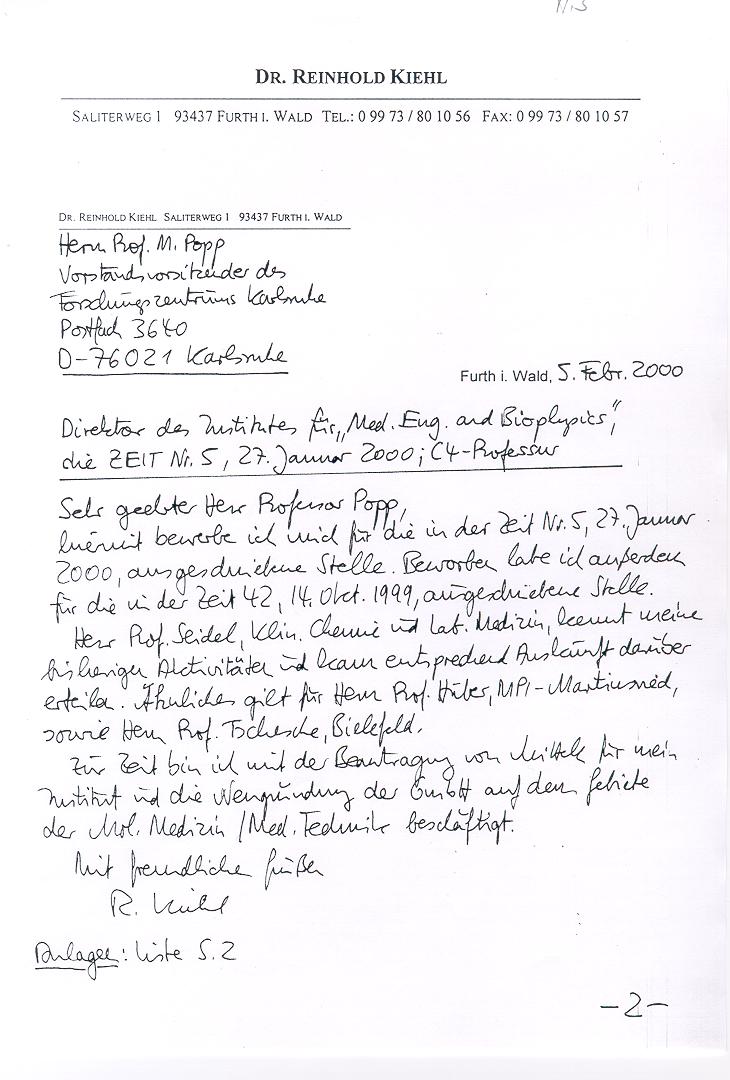 DR. REINHOLD KIEHL
SALITERWEG 1 93437 FURTH I. WALD TEL.: 0 99 73 / 80 10 56 FAX: 0 99 73 / 80 10 57
DR. REINHOLD KIEHL SALITERWEG 1 93437 FURTH I. WALD
Herrn Prof. M. Popp
Vorstandsvorsitzender des
Forschungszentrums Karlsruhe
Postfach 3640
D-76021 Karlsruhe
Furth i. Wald, 5. Febr. 2000
Direktor des Institutes für „Med. Eng. and Biophysics“,
die ZEIT Nr. 5, 27. Januar 2000; C4-Professur
Sehr geehrter Herr Professor Popp,
hiermit bewerbe ich mich für die in der Zeit Nr. 5, 27. Januar
2000, ausgeschriebene Stelle. Beworben habe ich außerdem
für die in der Zeit 42, 14. Okt. 1999, ausgeschriebene Stelle.
Herr Prof. Seidel, Klin. Chemie und Lab. Medizin, kennt meine
bisherigen Aktivitäten und kann entsprechend Auskunft darüber
erteilen. Ähnliches gilt für Herrn Prof. Huber, MPI-Martinsried,
sowie Herrn Prof. Tschesche, Bielefeld.
Zur Zeit bin ich mit der Beantragung von Mitteln für mein
Institut und die Neugründung der GmbH auf dem Gebiete
der Mol. Medizin / Med. Technik beschäftigt.
Mit freundlichen Grüßen
R. Kiehl
Anlagen: Liste S. 2
-2-